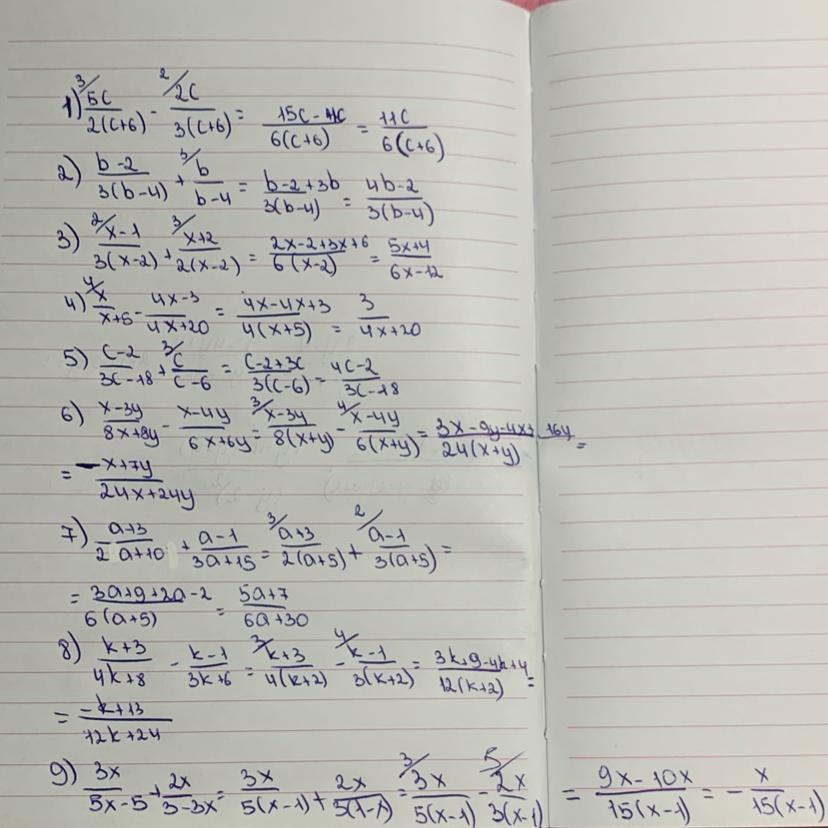 1) ³/5c / 2(c+6) - ²/2c / 3(c+6) = 15c-4c / 6(c+6) = 11c / 6(c+6)
2) b-2 / 3(b-4) + ³/b / b-4 = b-2+3b / 3(b-4) = 4b-2 / 3(b-4)
3) ²/x-1 / 3(x-2) + ³/x+2 / 2(x-2) = 2x-2+3x+6 / 6(x-2) = 5x+4 / 6x-12
4) ⁴/x / x+5 - 4x-3 / 4x+20 = 4x-4x+3 / 4(x+5) = 3 / 4x+20
5) c-2 / 3c-18 + ³/c / c-6 = c-2+3c / 3(c-6) = 4c-2 / 3c-18
6) x-3y / 8x+8y - x-4y / 6x+6y = ³/x-3y / 8(x+y) - ⁴/x-4y / 6(x+y) = 3x-9y-4x+16y / 24(x+y) =
= -x+7y / 24x+24y
7) a+3 / 2a+10 + a-1 / 3a+15 = ³/a+3 / 2(a+5) + ²/a-1 / 3(a+5) =
= 3a+9+2a-2 / 6(a+5) = 5a+7 / 6a+30
8) k+3 / 4k+8 - k-1 / 3k+6 = ³/k+3 / 4(k+2) - ⁴/k-1 / 3(k+2) = 3k+9-4k+4 / 12(k+2) =
= -k+13 / 12k+24
9) 3x / 5x-5 + 2x / 3-3x = 3x / 5(x-1) + 2x / 3(1-x) = ³/3x / 5(x-1) - ⁵/2x / 3(x-1) = 9x-10x / 15(x-1) = - x / 15(x-1)